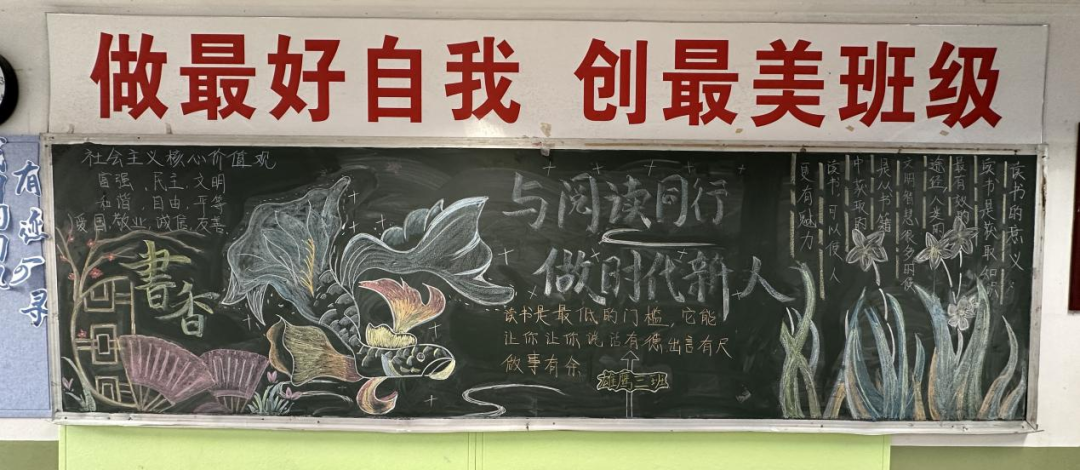 做最好自我 创最美班级
社会主义核心价值观
富强、民主、文明
和谐、自由、平等
爱国、敬业、诚信、友善
書香
与阅读同行
做时代新人
读书是最低的门槛，它能
让你让你说话有德出言有尺
做事有余
雄鹰二班
读书的意义
读书是获取知
最有效的
途径人类的
文明智慧很多的都
是从书籍
中获取的
读书可以使人
更有魅力